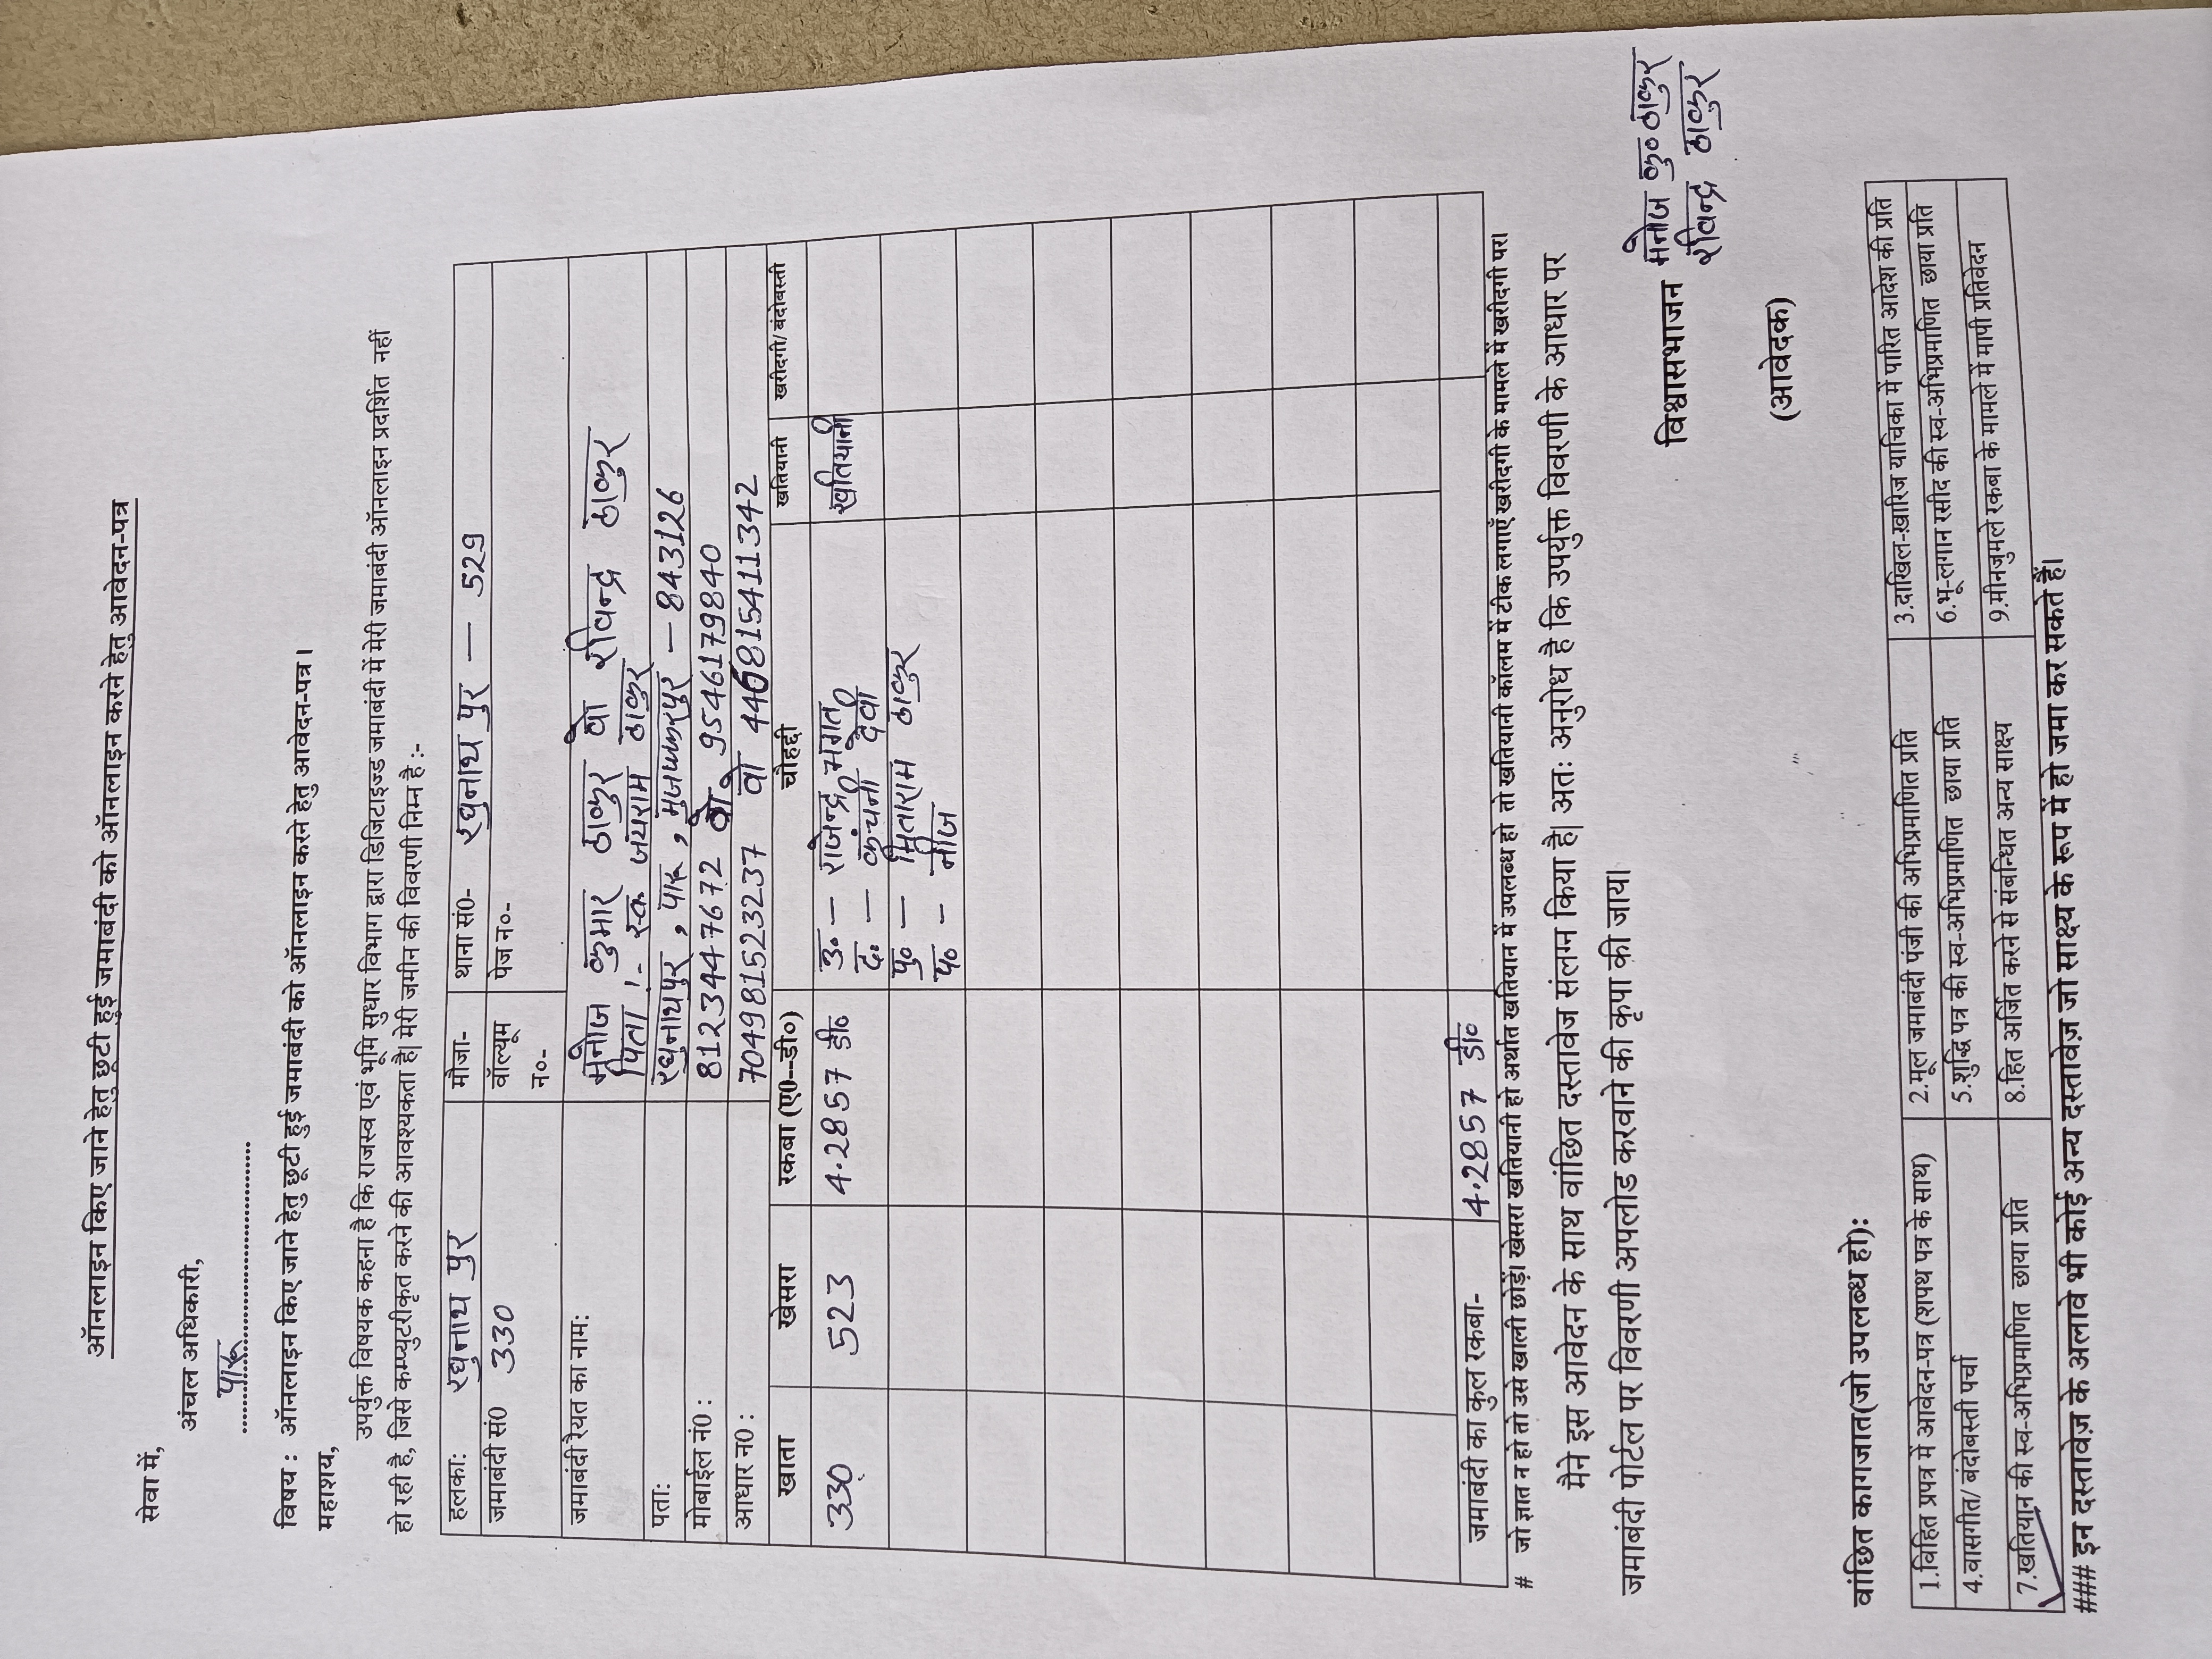 ऑनलाइन किए जाने हेतु छूटी हुई जमाबंदी को ऑनलाइन करने हेतु आवेदन-पत्र
सेवा में,
अंचल अधिकारी,
पारू
विषय : ऑनलाइन किए जाने हेतु छूटी हुई जमाबंदी को ऑनलाइन करने हेतु आवेदन-पत्र ।
महाशय,
उपर्युक्त विषयक कहना है कि राजस्व एवं भूमि सुधार विभाग द्वारा डिजिटाइज्ड जमाबंदी में मेरी जमाबंदी ऑनलाइन प्रदर्शित नहीं
हो रही है, जिसे कम्प्युटरीकृत करने की आवश्यकता है| मेरी जमीन की विवरणी निम्न है :-
हलका: रघुनाथ पुर मौजा- थाना सं0- रघुनाथ पुर — 529
जमाबंदी सं0 330 वॉल्यूम न०- पेज न०-
जमाबंदी रैयत का नाम: मनोज कुमार ठाकुर वो रविन्द्र ठाकुर
पिता :- स्व० जयराम ठाकुर
पता: रघुनाथपुर, पारू, मुजफ्फरपुर - 843126
मोबाईल नं0 : 8123447672 वो 9546179840
आधार न0 : 704981523237 वो 446815411342
खाता खेसरा रकबा (ए0--डी०) चौहद्दी खतियानी खरीदगी/ बंदोबस्ती
330 523 4.2857 डी० उ० - राजेन्द्र भगत खतियानी
द० - कंचनी देवी
पु० - सिताराम ठाकुर
प० - नीज
जमाबंदी का कुल रकबा- 4.2857 डी०
# जो ज्ञात न हो तो उसे खाली छोड़ें। खेसरा खतियानी हो अर्थात खतियान में उपलब्ध हो तो खतियानी कॉलम में टीक लगाएँ खरीदगी के मामले में खरीदगी पर।
मैने इस आवेदन के साथ वांछित दस्तावेज संलग्न किया है| अतः अनुरोध है कि उपर्युक्त विवरणी के आधार पर
जमाबंदी पोर्टल पर विवरणी अपलोड करवाने की कृपा की जाय।
विश्वासभाजन मनोज कु० ठाकुर
रविन्द्र ठाकुर
(आवेदक)
वांछित कागजात(जो उपलब्ध हो):
1.विहित प्रपत्र में आवेदन-पत्र (शपथ पत्र के साथ) 2.मूल जमाबंदी पंजी की अभिप्रमाणित प्रति 3.दाखिल-ख़ारिज याचिका में पारित आदेश की प्रति
4.वासगीत/ बंदोबस्ती पर्चा 5.शुद्धि पत्र की स्व-अभिप्रमाणित छाया प्रति 6.भू-लगान रसीद की स्व-अभिप्रमाणित छाया प्रति
7.खतियान की स्व-अभिप्रमाणित छाया प्रति 8.हित अर्जित करने से संबन्धित अन्य साक्ष्य 9.मीनजुमले रकबा के मामले में मापी प्रतिवेदन
### इन दस्तावेज़ के अलावे भी कोई अन्य दस्तावेज़ जो साक्ष्य के रूप में हो जमा कर सकते हैं।